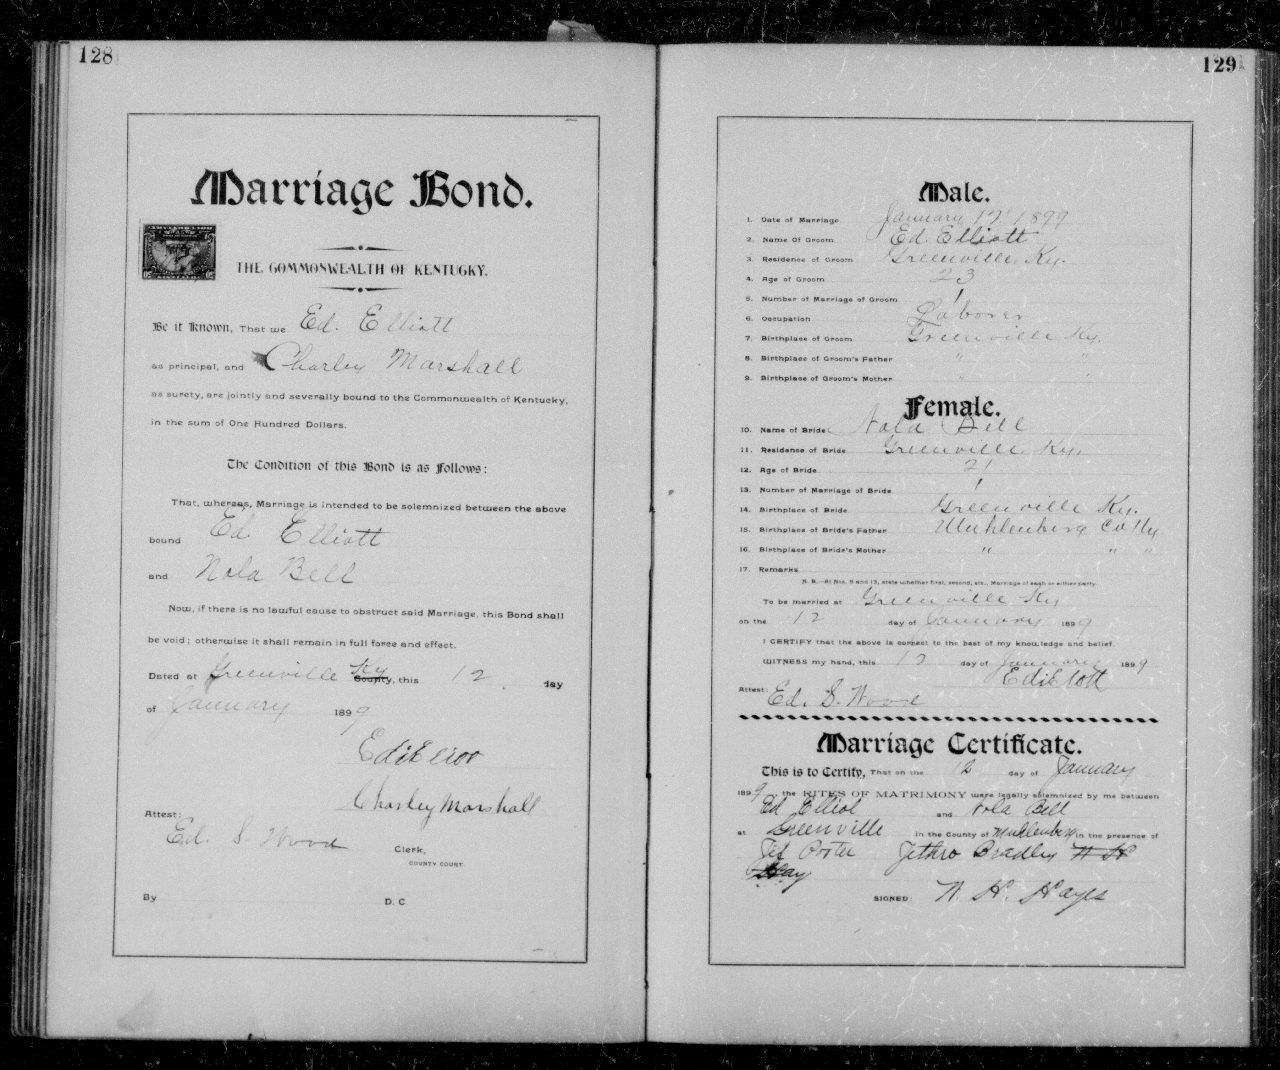 128
Marriage Bond.
THE COMMONWEALTH OF KENTUCKY.
Be it Known, That we Ed. Elliott
as principal, and Charley Marshall
as surety, are jointly and severally bound to the Commonwealth of Kentucky,
in the sum of One Hundred Dollars.
The Condition of this Bond is as follows:
That, whereas, Marriage is intended to be solemnized between the above
bound Ed Elliott
and Nola Bell
Now, if there is no lawful cause to obstruct said Marriage, this Bond shall
be void; otherwise it shall remain in full force and effect.
Dated at Greenville Ky County, this 12 day
of January 1899
Charley Marshall
Attest:
Ed. S. Wood Clerk,
COUNTY COURT.
By D. C
129
Male.
1. Date of Marriage January 12 1899
2. Name Of Groom Ed. Elliott
3. Residence of Groom Greenville Ky.
4. Age of Groom 23
5. Number of Marriage of Groom 1
6. Occupation Laborer
7. Birthplace of Groom Greenville Ky.
8. Birthplace of Groom's Father " "
9. Birthplace of Groom's Mother " "
Female.
10. Name of Bride Nola Bell
11. Residence of Bride Greenville Ky.
12. Age of Bride 21
13. Number of Marriage of Bride 1
14. Birthplace of Bride Greenville Ky.
15. Birthplace of Bride's Father Muhlenberg Co Ky
16. Birthplace of Bride's Mother " " "
17. Remarks
N. B.—At Nos. 5 and 13, state whether first, second, etc., Marriage of each or either party.
To be married at Greenville Ky
on the 12 day of January 1899
I CERTIFY that the above is correct to the best of my knowledge and belief.
WITNESS my hand, this 12 day of January 1899
Attest: Ed. S. Wood
Marriage Certificate.
This is to Certify, That on the 12 day of January
1899, the RITES OF MATRIMONY were legally solemnized by me between
Ed Elliot and Nola Bell
at Greenville in the County of Muhlenberg in the presence of
Porter Jethro Bradley W H
Hay
SIGNED: W. H. Hayes